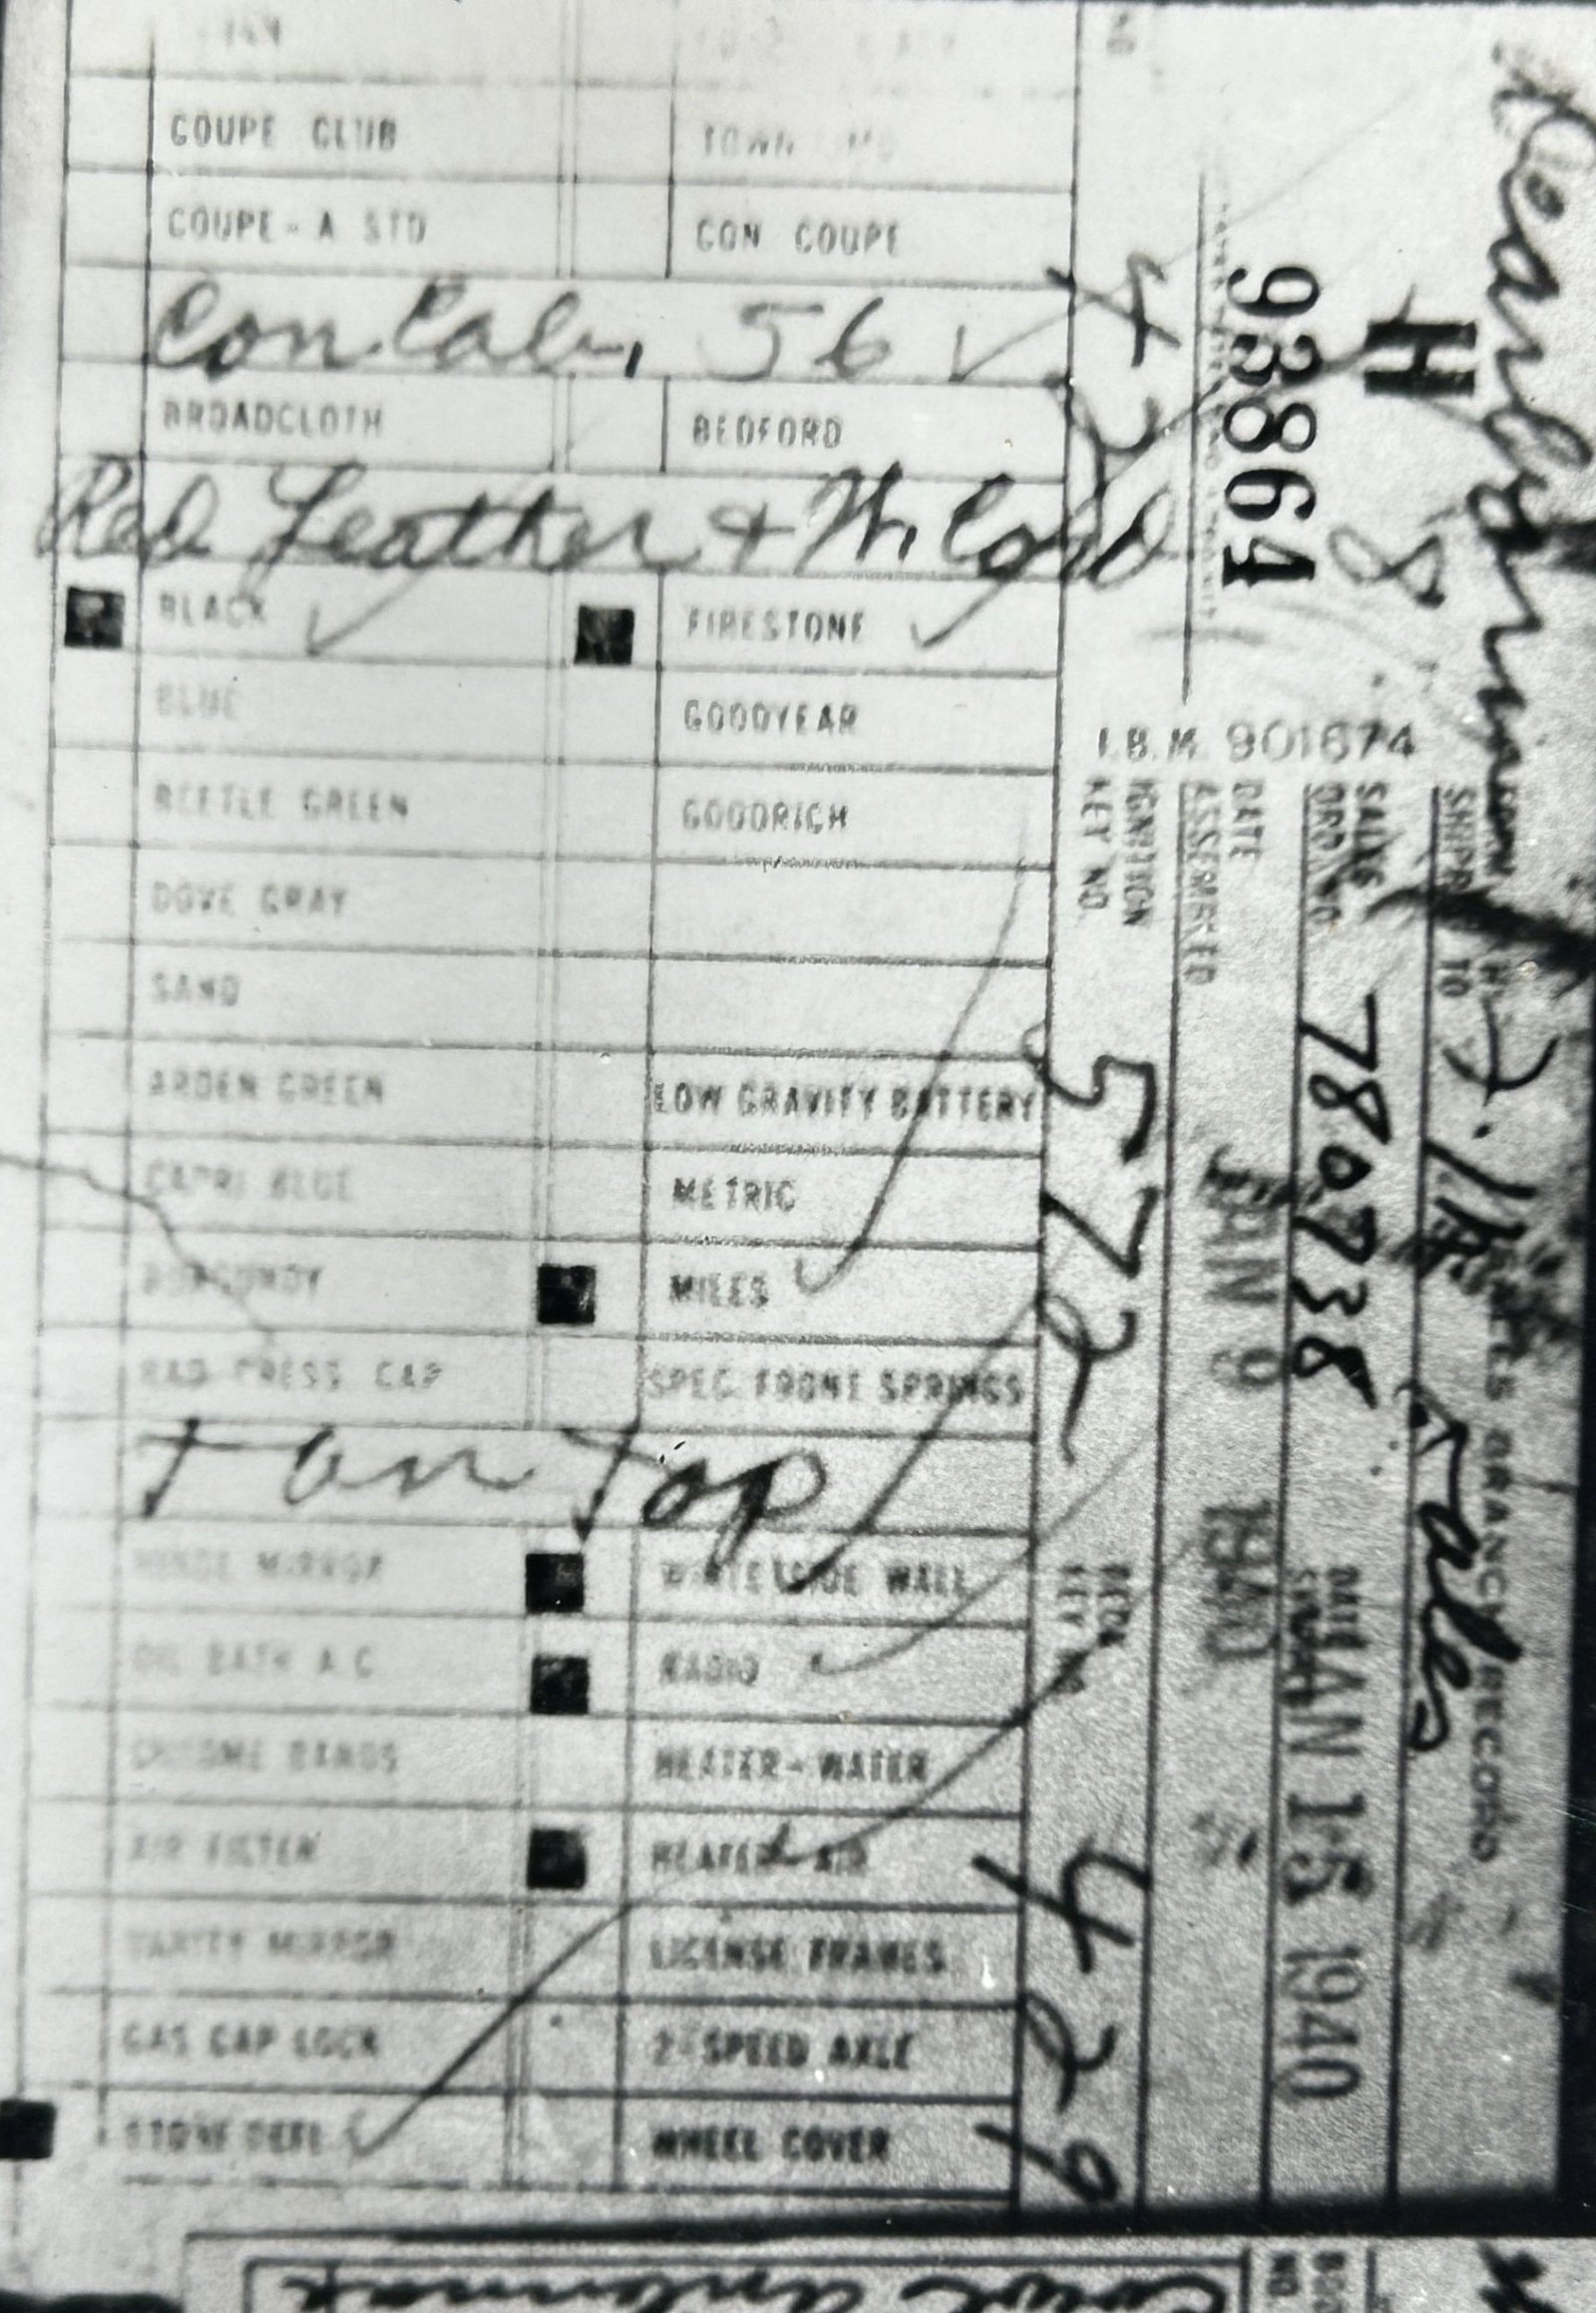 COUPE CLUB
TOWN
COUPE - A STD
CON COUPE
Con. Cab. 56 ✓
BROADCLOTH
BEDFORD
Red Leather + W. Cord
BLACK ✓
FIRESTONE ✓
BLUE
GOODYEAR
BEETLE GREEN
GOODRICH
DOVE GRAY
SAND
ARDEN GREEN
LOW GRAVITY BATTERY
CAPRI BLUE
METRIC
BURGUNDY
MILES ✓
RAD PRESS CAP
SPEC FRONT SPRINGS
Tan Top
HINGE MIRROR
WHITE SIDE WALL
OIL BATH A C
RADIO ✓
CHROME BANDS
HEATER - WATER
AIR FILTER
HEATER - AIR
VANITY MIRROR
LICENSE FRAMES
GAS CAP LOCK
2-SPEED AXLE
STONE DEFL ✓
WHEEL COVER
H
93864
8
I.B.M. 901674
SHIPPED TO
SALES BRANCH RECORD
SALES ORD NO 780738
DATE JAN 15 1940
DATE ASSEMBLED JAN 9 1940
IGNITION KEY NO. 572
KEY NO 429